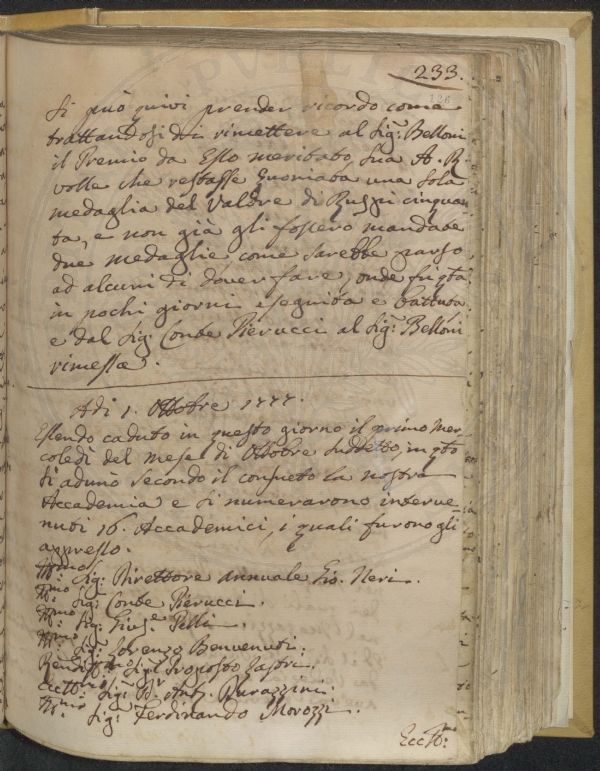 233.
126
Si può quivi prender ricordo come
trattandosi di rimettere al Sig.r Belloni
il Premio da Esso meritato, Sua A. R.
volle che restasse Coniata una sola
medaglia del valore di Ruspi cinquan
ta, e non già gli fossero mandate
due medaglie come sarebbe parso
ad alcuni di dover fare, onde fu qta
in pochi giorni eseguita e battuta
e dal Sig. Conte Pierucci al Sig.r Belloni
rimessa.
Adi 1. Ottobre 1777.
Essendo caduto in questo giorno il primo Mer
coledì del mese di Ottobre suddetto, in qto
si adunò secondo il consueto la nostra
Accademia e si numerarono interve
nuti 16. Accademici, i quali furono gli
appresso.
Ill.mo Sig.r Direttore annuale Gio. Neri.
Ill.mo Sig. Conte Pierucci.
Ill.mo Sig. Gius.e Pelli.
Ill.mo Sig. Lorenzo Benvenuti.
Rend.mo Sig.r Proposto Lastri.
Ecc.mo Sig.r D. Ant. Durazzini.
Ill.mo Sig.r Ferdinando Morozzi.
Ecc.mo